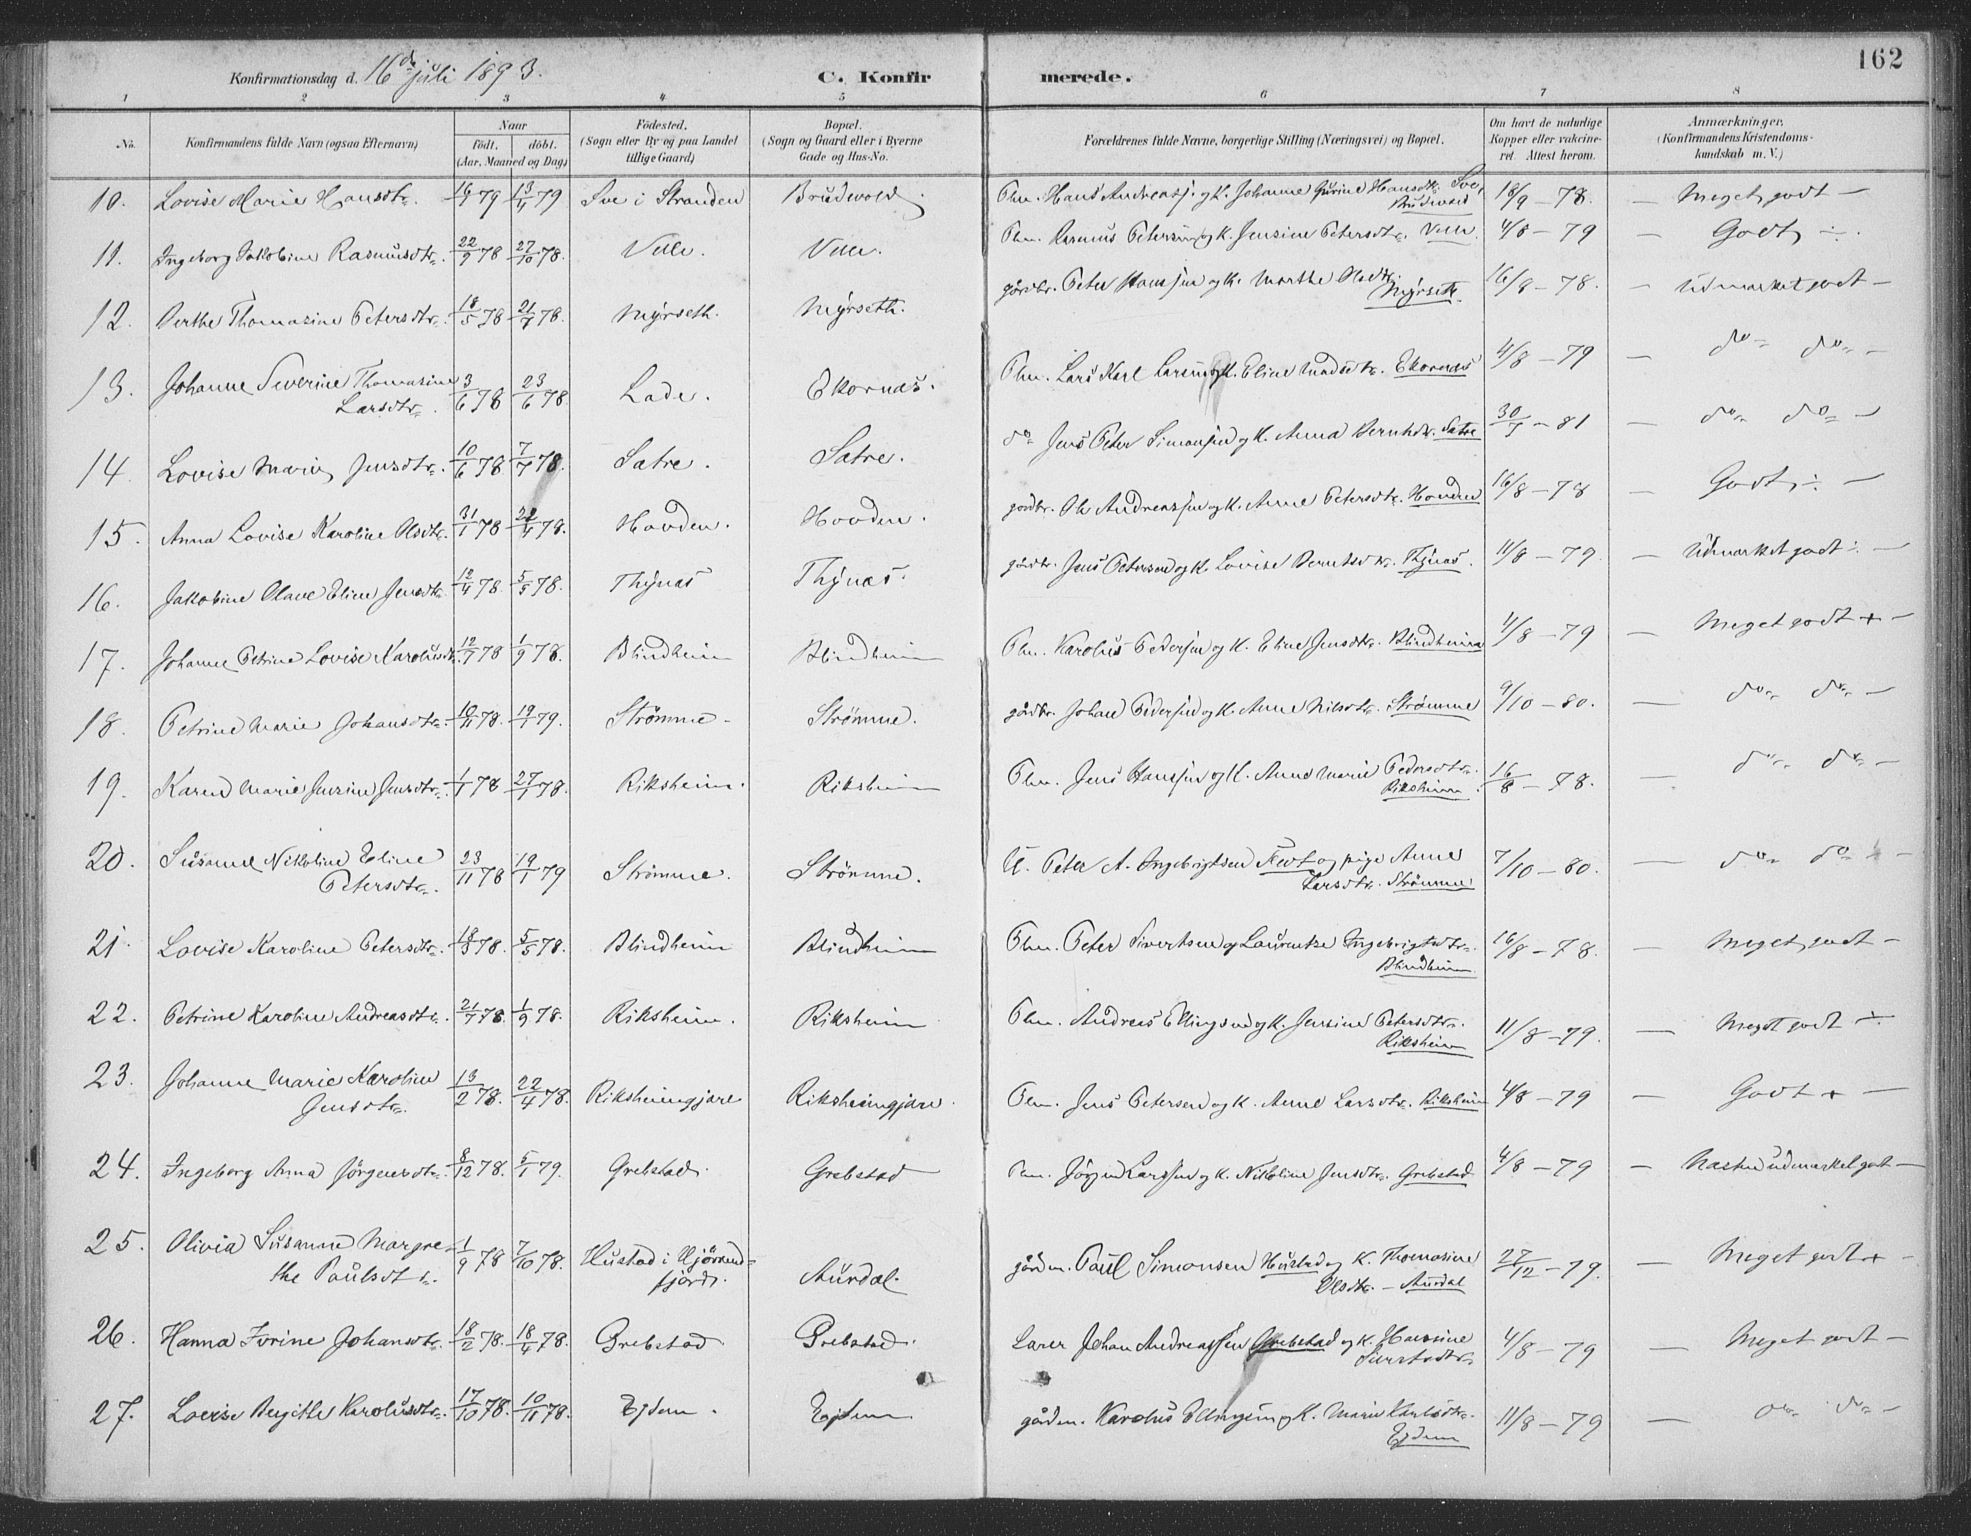 162
Konfirmationsdag d. 16de juli 1893. C. Konfirmerede.
1 2 3 4 5 6 7 8
No. Konfirmandens fulde Navn (ogsaa Efternavn) Naar født. døbt. (Aar, Maaned og Dag) Fødested. (Sogn eller By og paa Landet tillige Gaard) Bopæl. (Sogn og Gaard eller i Byerne Gade og Hus-No. Forældrenes fulde Navne, borgerlige Stilling (Næringsvei) og Bopæl. Om havt de naturlige Kopper eller vakcineret. Attest herom. Anmærkninger. (Konfirmandens Kristendomskundskab m. V.)
10. Lovise Marie Hansdtr. 79 13/4 79 Sve i Stranden Brudevold Hans Andreassj. og K. Johanne Hansdtr. Sve, Brudevold 18/9 - 78. - Meget godt -
11. Ingeborg Jakobine Rasmusdtr. 22/9 78 27/10 78. Velle. Velle. Plm. Rasmus Petersen og K. Jensine Petersdtr. Velle. 4/8 - 79 - Godt ÷.
12. Berthe Thomasine Petersdtr. 18/5 78 21/7 78. Myrseth. Myrseth. gårdbr. Peter Hansen og K. Marthe Olsdtr. Myrseth. 16/8 - 78. - Udmærket godt -
13. Johanne Severine Thomasine Larsdtr. 3/6 78 23/6 78. Lade. Ekornæs. Plm. Lars Karl Larsen og K. Eline Madsdtr. Ekornæs 4/8 - 79 - do do -
14. Lovise Marie Jensdtr. 10/6 78 7/7 78. Satre. Satre. do Jens Peter Simonsen og K. Anna Berntsdtr. Satre - 81 - do do -
15. Anna Lovise Karoline Olsdtr. 31/1 78 78. Hovden. Hovden. gårdbr. Ole Andreassen og K. Anne Petersdtr. Hovden 16/8 - 78 - Godt ÷ -
16. Jakobine Olave Eline Jensdtr. 12/4 78. 5/5 78. Thynæs Thynæs. gårdbr. Jens Petersen og K. Lovise Berntsdtr. Thynæs. 11/8 - 79. - Udmærket godt ÷ -
17. Johanne Petrine Lovise Karolusdtr. 12/7 78 1/9 78. Blindheim Blindheim Plm. Karolus Pedersen og K. Eline Jensdtr. Blindheim - 79 - Meget godt + -
18. Petrine Marie Johansdtr. 10/11 78. 19/1 79. Strømme - Strømme. gårdbr. Johan Pedersen og K. Anne Nilsdtr. Strømme 9/10 - 80. - do do -
19. Karen Marie Jensine Jensdtr. 1/1 78 27/1 78. Riksheim. Riksheim Plm. Jens Hanssen og K. Anne Marie Pedersdtr. Riksheim. 16/8 - 78. - do do -
20. Susanne Nikoline Eline Petersdtr. 23/11 78 19/1 79 Strømme. Strømme. U. Peter A. Ingebrigtsen og pige Anne Larsdtr. Strømme 7/10 - 80. - do do -
21. Lovise Karoline Petersdtr. 18/3 78. 5/5 78. Blindheim Blindheim Plm. Peter Sivertsen og Laurentse Ingebrigtsdtr. Blindheim 16/8 - 78. - Meget godt -
22. Petrine Karoline Andreasdtr. 21/7 78. 1/9 78. Riksheim. Riksheim Plm. Andreas Ellingsen og K. Jensine Petersdtr. Riksheim 11/8 - 79. - Meget godt ÷
23. Johanne Marie Karoline Jensdtr. 13/2 78. 22/4 78. Riksheimgjære Riksheimgjære. Plm. Jens Petersen og K. Anne Larsdtr. Riksheim 4/8 - 79 - Godt + -
24. Ingeborg Anna Jørgensdtr. 8/12 78. 5/1 79. Grebstad. Grebstad Plm. Jørgen Larssen og K. Nikoline Jensdtr. Grebstad 4/8 - 79 - Næsten udmærket godt -
25. Olivia Susanne Margrethe Paulsdtr. 1/9 78 7/10 78. Hustad i Hjørendfjord. Aurdal. gårdm. Paul Simonsen Hustad og K. Thomasine Olsdtr. - Aurdal 27/12 - 79. - Meget godt + -
26. Hanna Jorine Johansdtr. 18/2 78. 18/4 78. Grebstad Grebstad. Lærer Johan Andreassen Grebstad og K. Hansine Sivertsdtr. 4/8 - 79 - Meget godt -
27. Lovise Birgitte Karolusdtr. 17/10 78. 10/11 78. Ejdem. Ejdem. gårdm. Karolus Ellingsen og K. Marie Karlsdtr. Ejdem 11/8 - 79 - do do -